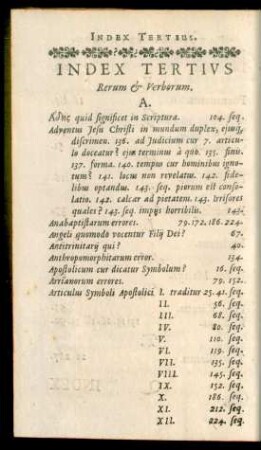 INDEX TERTIUS.
INDEX TERTIVS
Rerum & Verborum.
A.
ᾍδης quid significet in Scriptura. 104. seq.
Adventus Jesu Christi in mundum duplex, ejusq;
discrimen. 136. ad Judicium cur 7. articu-
lo doceatur? ejus terminus à quò. 135. finis.
137. forma. 140. tempus cur hominibus igno-
tum? 141. locus non revelatus. 142. fide-
libus optandus. 143. seq. piorum est conso-
latio. 142. calcar ad pietatem. 143. irrisores
quales? 143. seq. impijs horribilis. 143.
Anabaptistarum errores. 79. 172. 186. 224.
Angeli quomodo vocentur Filij Dei? 67.
Antitrinitarij qui? 40.
Anthropomorphitarum error. 134.
Apostolicum cur dicatur Symbolum? 16. seq.
Arrianorum errores. 79. 132.
Articulus Symboli Apostolici I. traditur 25. 41. seq.
II. 56. seq.
III. 68. seq.
IV. 80. seq.
V. 110. seq.
VI. 119. seq.
VII. 135. seq.
VIII. 145. seq.
IX. 152. seq.
X. 186. seq.
XI. 212. seq.
XII. 224. seq.